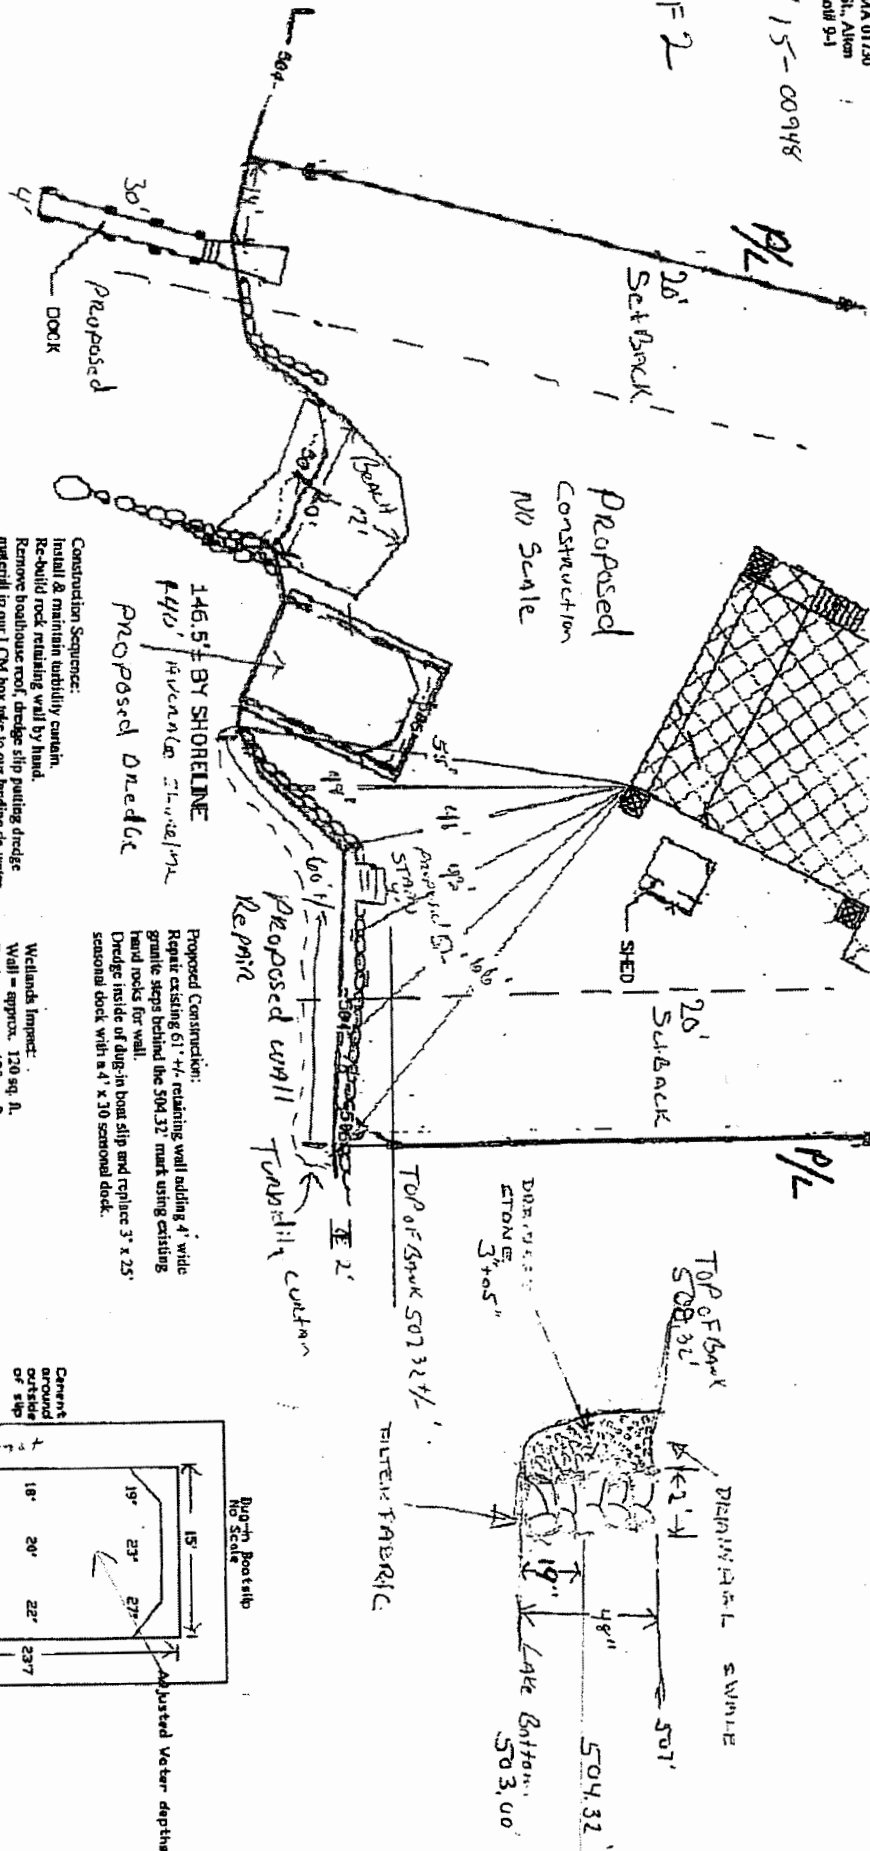 MA 01730
St., Alton
9-1
15-00948
F 2
P/L
20'
SetBack
504
14'
30'
4'
DOCK
Proposed
Proposed
Construction
No Scale
BEACH
12'
146.5'± BY SHORELINE
Average Shoreline
Proposed Dredge
55'
49'
48'
66'
Proposed
4'
60' +/-
Proposed Wall
Repair
SHED
20'
SetBack
P/L
504
506
2'
Turbidity Curtain
TOP OF BANK 507.32 +/-'
Construction Sequence:
Install & maintain turbidity curtain.
Re-build rock retaining wall by hand.
Remove boathouse roof, dredge slip putting dredge
Proposed Construction:
Repair existing 61' +/- retaining wall adding 4' wide
granite steps behind the 504.32' mark using existing
hand rocks for wall.
Dredge inside of dug-in boat slip and replace 3' x 25'
seasonal dock with a 4' x 30 seasonal dock.
Wetlands Impact:
Wall = approx. 120 sq. ft.
STONE
3" to 5"
TOP OF BANK
508.32'
DRAINAGE SWALE
2'
507'
19"
48"
504.32'
Lake Bottom
503.00
FILTER FABRIC
Dug-in Boatslip
No Scale
Cement
around
outside
of slip
15'
19" 23" 27"
18" 20" 22"
23'7
Adjusted Water depths